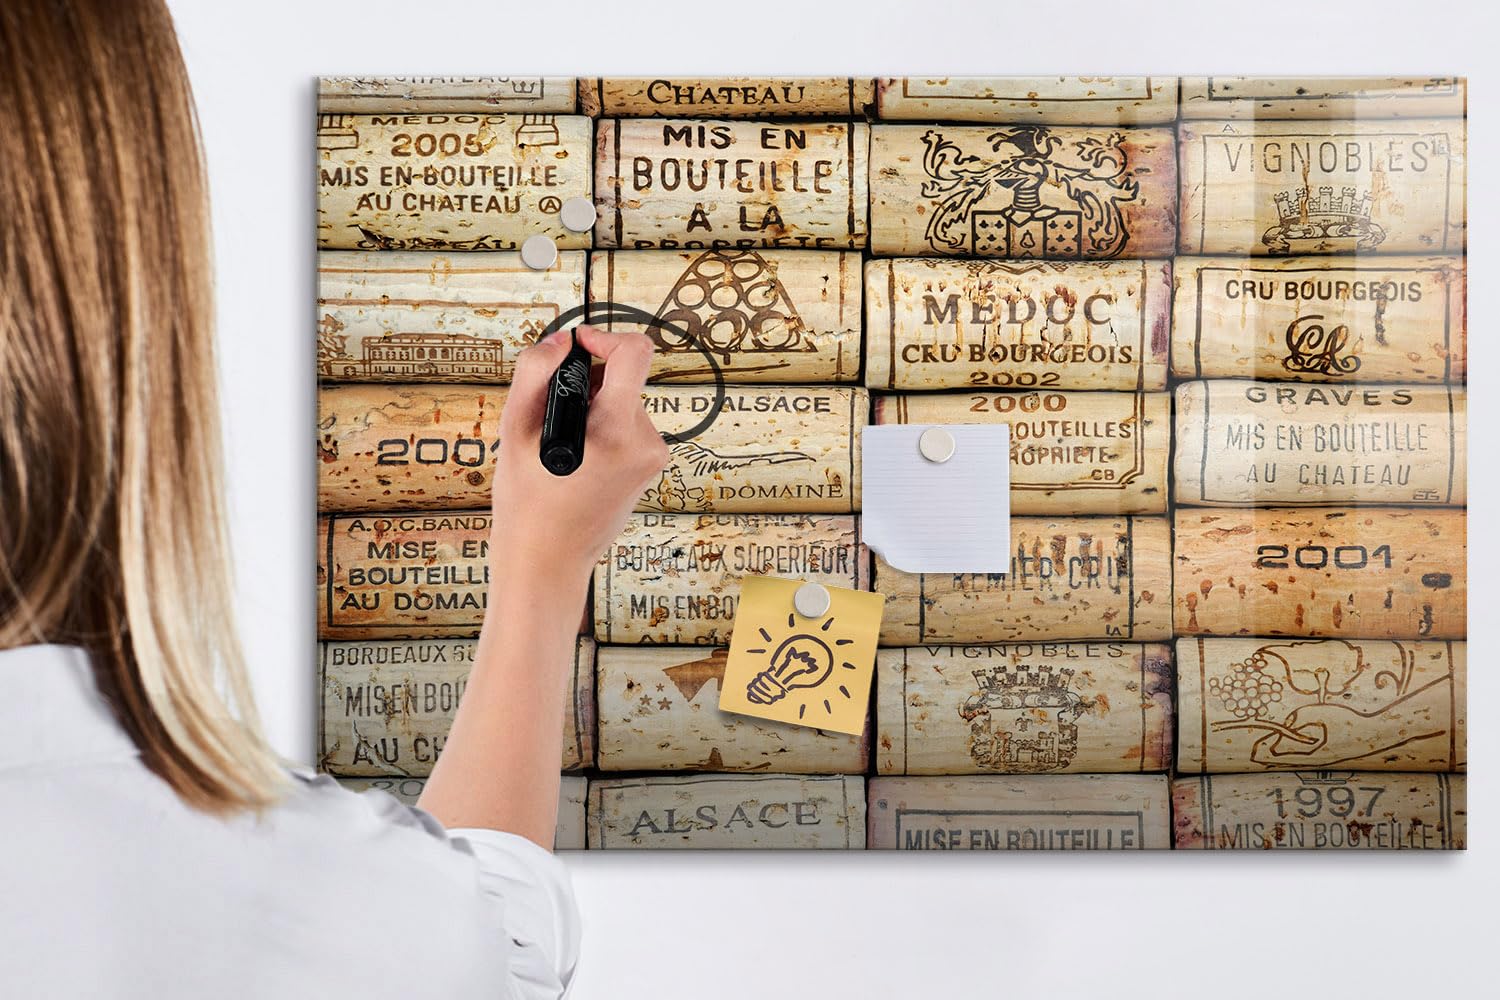 CHATEAU
MEDOC
2005
MIS EN BOUTEILLE
AU CHATEAU
CHATEAU
MIS EN
BOUTEILLE
A LA
PROPRIETE
VIGNOBLES
MEDOC
CRU BOURGEOIS
2002
CRU BOURGEOIS
VIN D'ALSACE
DOMAINE
2000
OUTEILLES
ROPRIETE
CB
GRAVES
MIS EN BOUTEILLE
AU CHATEAU
200
A.O.C.BANDO
MISE EN
BOUTEILL
AU DOMAI
BORDEAUX SUPERIEUR
MIS EN BOU
REMIER CRU
LA
2001
BORDEAUX SU
MIS EN BOU
AU CH
VIGNOBLES
20
ALSACE
MISE EN BOUTEILLE
1997
MIS EN BOUTEILLE